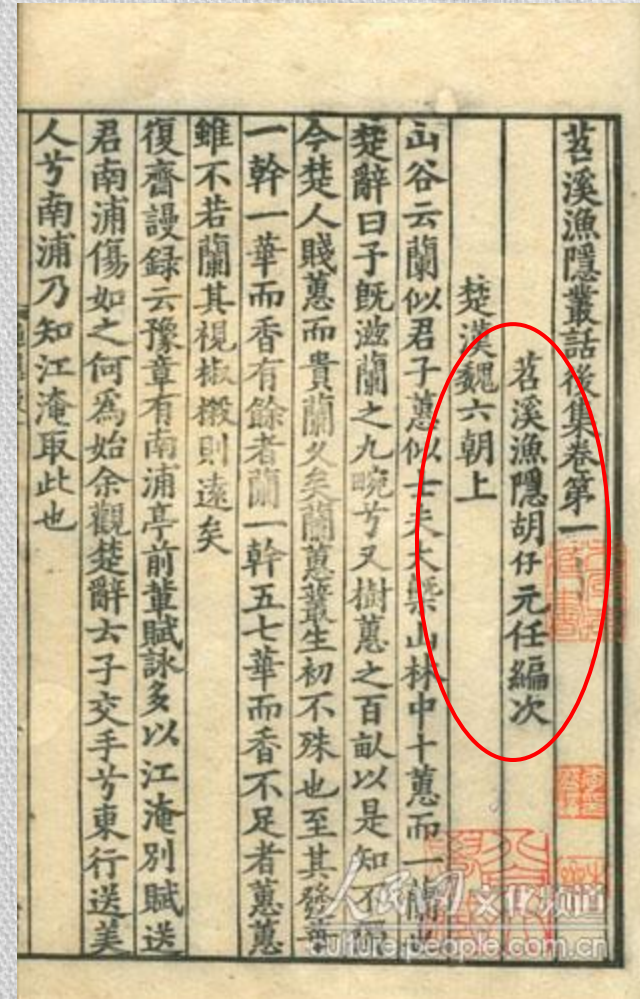 苕溪漁隱叢話後集卷第一
苕溪漁隱胡仔元任編次
楚漢魏六朝上
山谷云蘭似君子蕙似士夫大槩山林中十蕙而一蘭也
楚辭曰予旣滋蘭之九畹兮又樹蕙之百畝以是知不獨
今楚人賤蕙而貴蘭久矣蘭蕙叢生初不殊也至其發華
一幹一華而香有餘者蘭一幹五七華而香不足者蕙蕙
雖不若蘭其視椒樧則遠矣
復齋謾録云豫章有南浦亭前軰賦詠多以江淹別賦送
君南浦傷如之何爲始余觀楚辭云子交手兮東行送美
人兮南浦乃知江淹取此也
人民网 文化频道
culture.people.com.cn